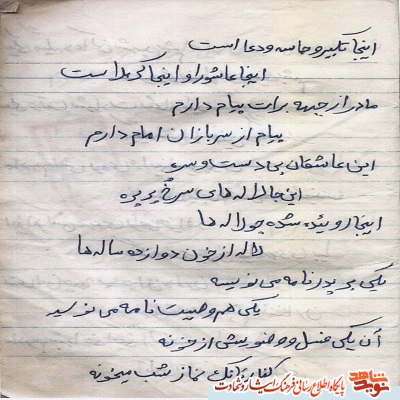 اینجا تکبیر و حماسه و دعا است
اینجا عاشورا و اینجا کربلا است
مادر از جبهه برات پیام دارم
پیام از سربازان امام دارم
این عاشقان بی دست و سر
این جا لاله های سرخ پرپره
اینجا روییده شده چو لاله ها
لاله از خون دوازده ساله ها
یکی بر پدر نامه می نویسه
یکی هم وصیت نامه می نویسد
آن یکی غسل و وضویش از خونه
کنار تانک نماز شب میخونه
نوید شاهد
پایگاه اطلاع رسانی فرهنگ ایثار و شهادت